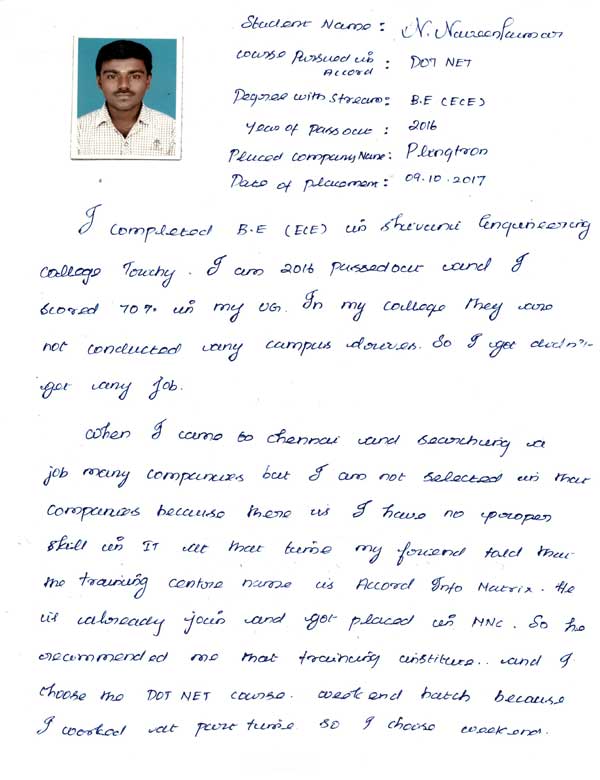 Student Name : N. Naveenkumar
Course Pursued in Accord : DOT NET
Degree with Stream : B.E (ECE)
Year of Passout : 2016
Placed Company Name : Plingtron
Date of placement : 09.10.2017
I completed B.E (ECE) in Shivani Engineering
College Touchy. I am 2016 passedout and I
scored 70% in my UG. In my college they are
not conducted any campus drives. So I get didn't
get any job.
When I came to chennai and searching a
job many companies but I am not selected in that
companies because there is I have no proper
skill in IT at that time my friend told that
the training centre name is Accord Info Matrix. He
is already join and got placed in MNC. So he
recommended me that training institute.. and I
choose the DOT NET course. weekend batch because
I worked at part time so I choose weekend.